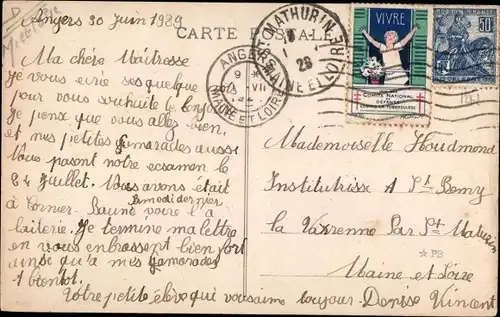 Angers 30 juin 1929
CARTE POSTALE
Ma chère Maîtresse
je vous écrie ses quelque
pour vous souhaité le bonjour
Je pense que vous alles bien.
et mes petites camarades aussi
Nous pasont notre ecsamen le
2 Juillet. Nous avons était
Samedi dernier
à voire la
laiterie. Je termine ma lettre
en vous enbrassent bien fort
ainsi qu'a mes camarades
A bientot.
Votre petite élève qui vous aime toujour - Denise Vincent
ANGERS
MAINE ET LOIRE
St MATHURIN
MAINE ET LOIRE
VIVRE
COMITÉ NATIONAL
DE DÉFENSE
CONTRE LA TUBERCULOSE
50c
Mademoiselle Houdmond
Institutrisse A St Remy
la Varrenne Par St Maturin
* PB
Maine et Loire